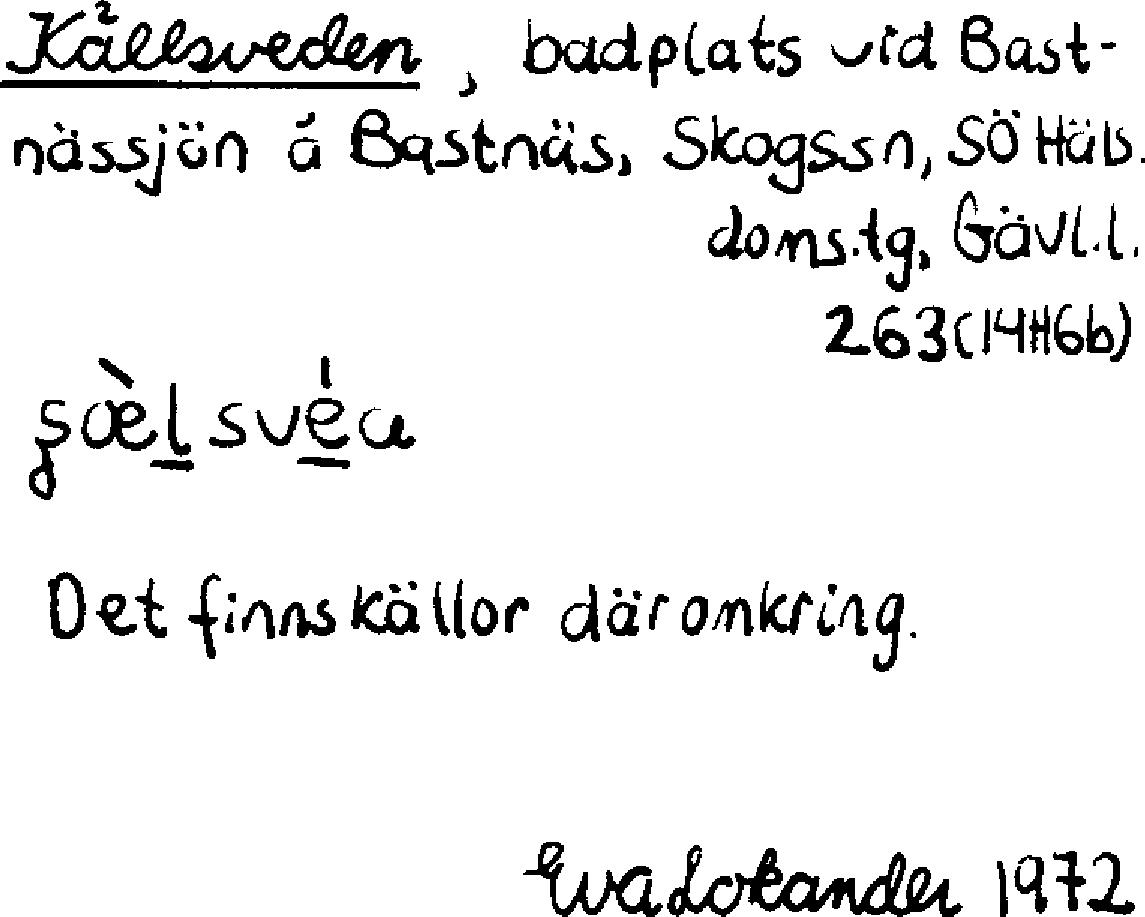 Källsveden, badplats vid Bast-
nässjön å Bastnäs, Skogssn, SÖ Häls.
doms.tg, Gävl.l.
263(14H6b)
ʂòelsvéa
Det finns källor däromkring.
Eva Lokander 1972